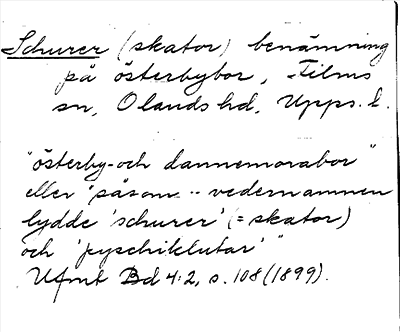 Schurer (skator) benämning
på österbybor, Films
sn, Olands hd, Upps. l.
"österby- och dannemorabor"
eller "såsom -- vedernamnen
lydde 'schurer' (= skator)
och 'pyschiklutar'"
Ufmt Bd 4:2, s. 108 (1899).